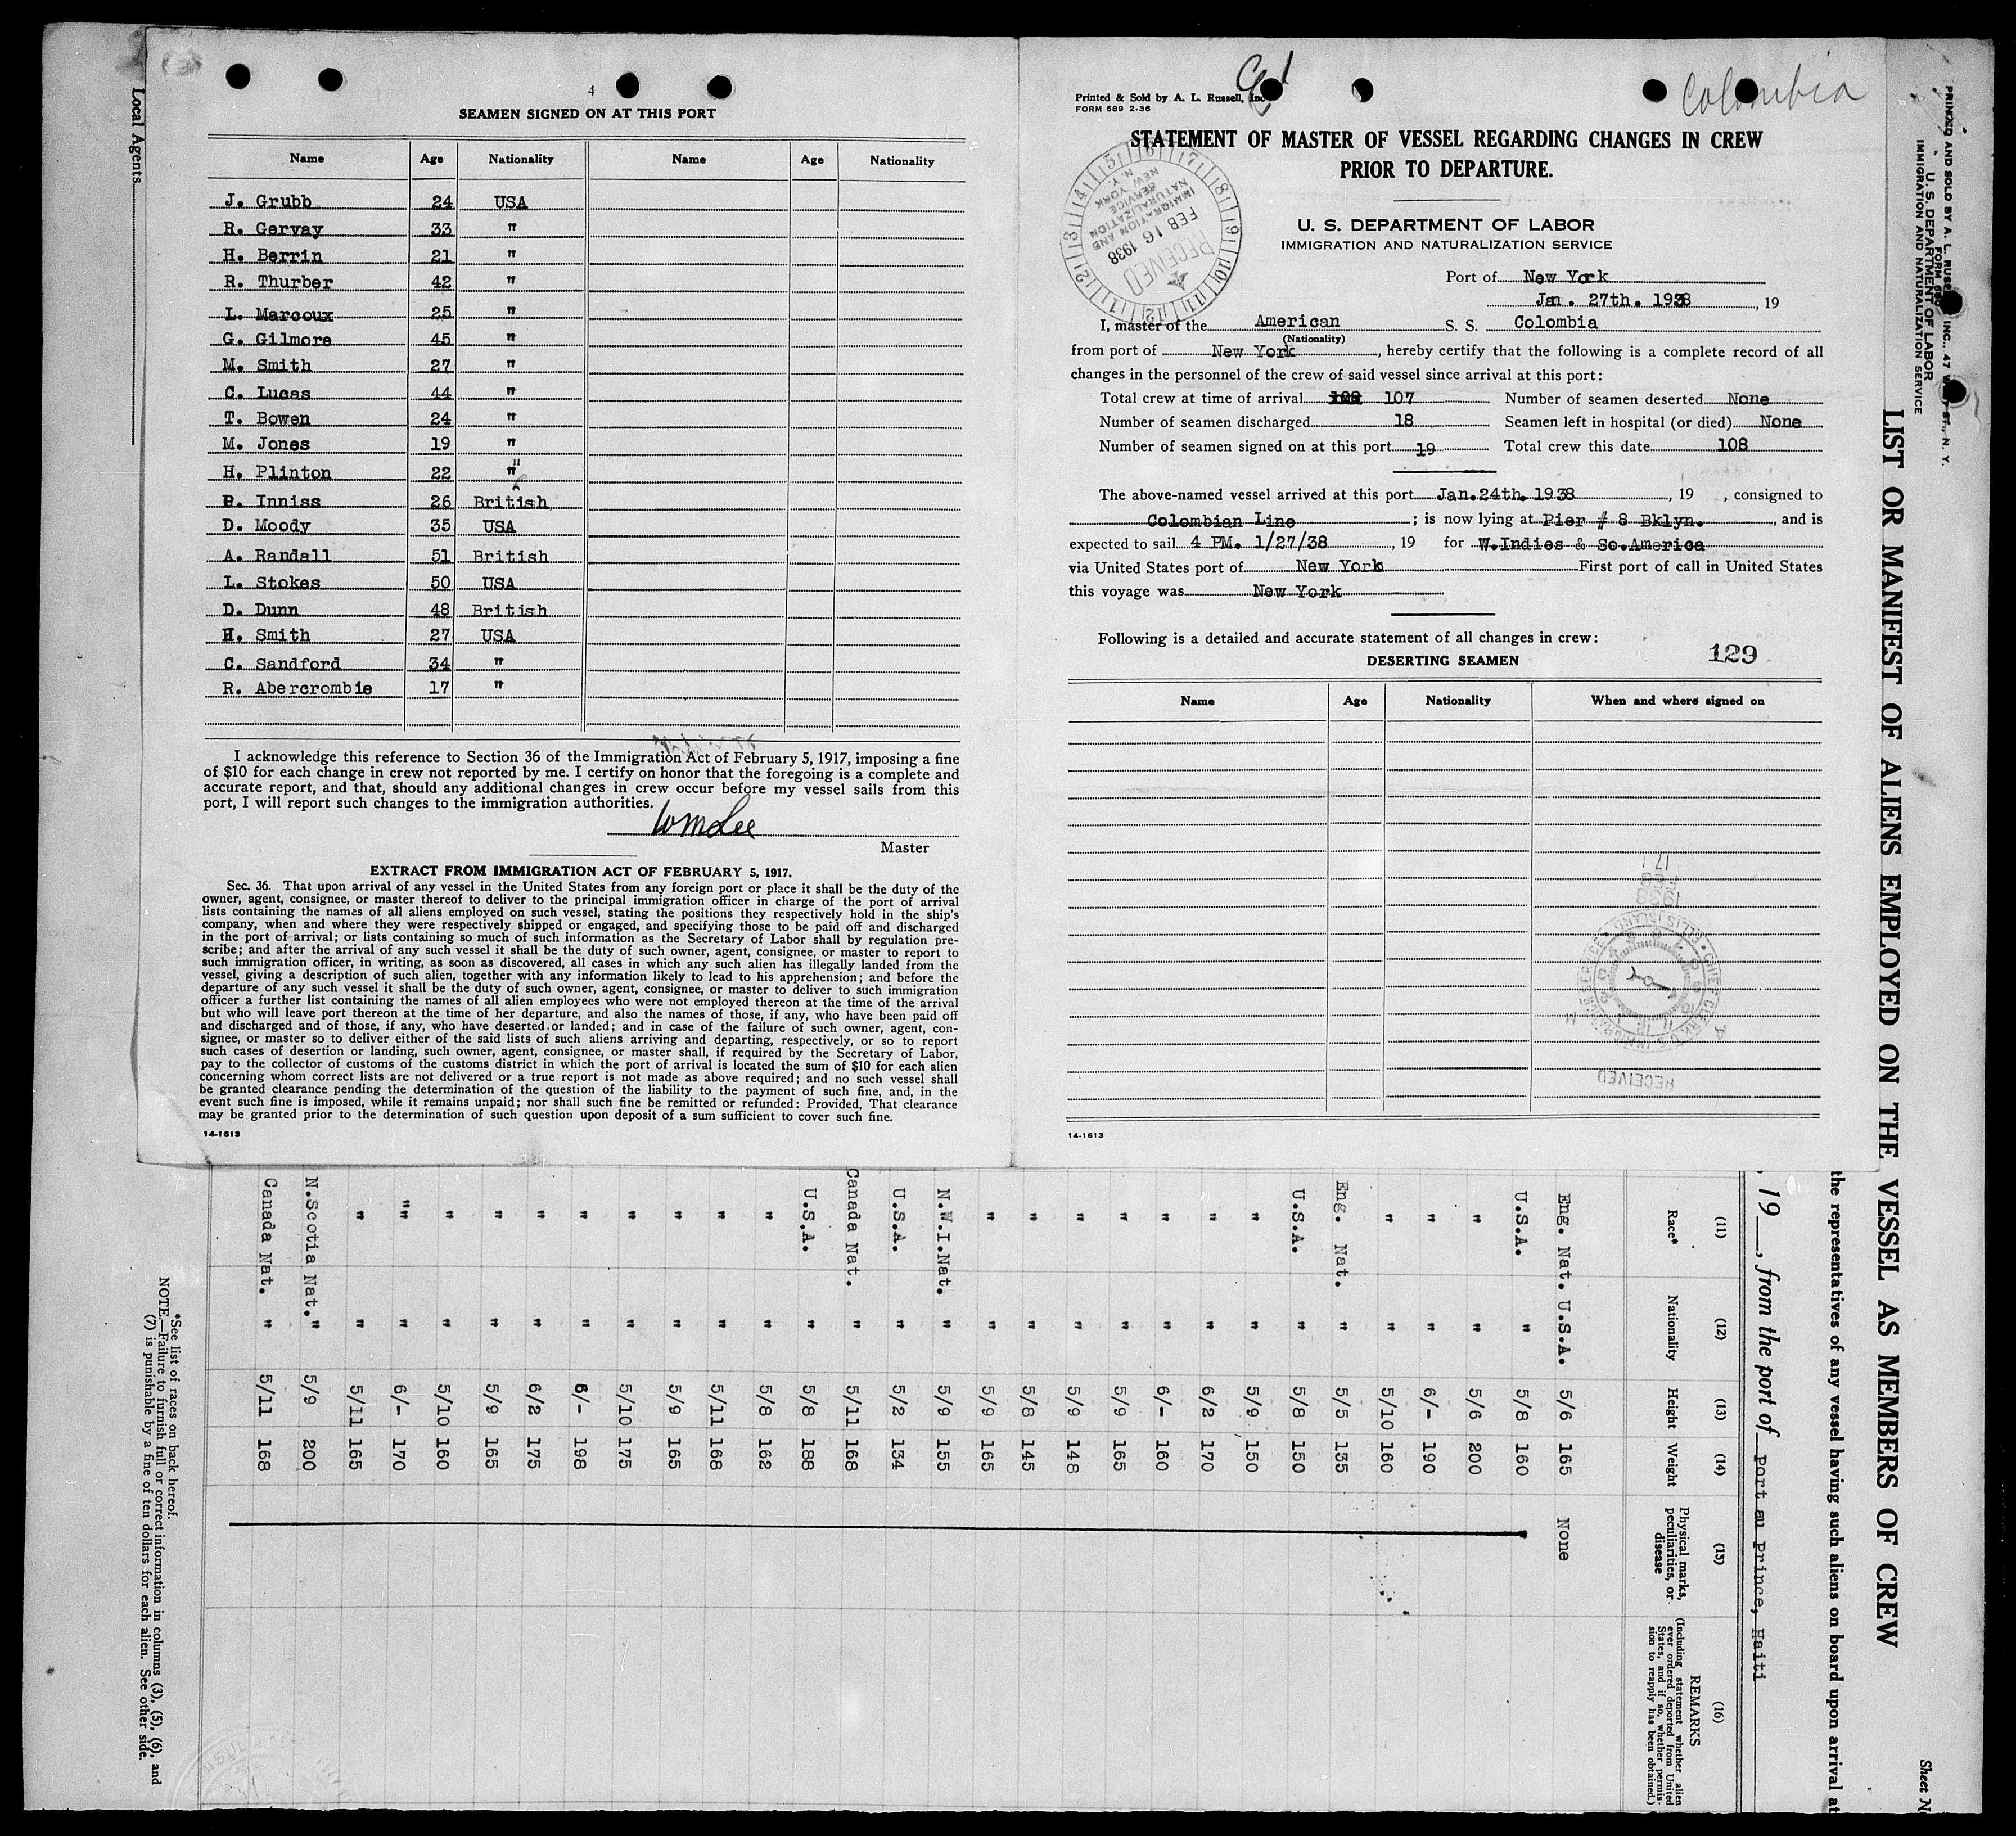 4
SEAMEN SIGNED ON AT THIS PORT
Name Age Nationality Name Age Nationality
J. Grubb 24 USA
R. Gervay 33 "
H. Berrin 21 "
R. Thurber 42 "
L. Marcoux 25 "
G. Gilmore 45 "
M. Smith 27 "
C. Lucas 44 "
T. Bowen 24 "
M. Jones 19 "
H. Plinton 22 "
Inniss 26 British
D. Moody 35 USA
A. Randall 51 British
L. Stokes 50 USA
D. Dunn 48 British
H. Smith 27 USA
C. Sandford 34 "
R. Abercrombie 17 "
I acknowledge this reference to Section 36 of the Immigration Act of February 5, 1917, imposing a fine
of $10 for each change in crew not reported by me. I certify on honor that the foregoing is a complete and
accurate report, and that, should any additional changes in crew occur before my vessel sails from this
port, I will report such changes to the immigration authorities.
Master
EXTRACT FROM IMMIGRATION ACT OF FEBRUARY 5, 1917.
Sec. 36. That upon arrival of any vessel in the United States from any foreign port or place it shall be the duty of the
owner, agent, consignee, or master thereof to deliver to the principal immigration officer in charge of the port of arrival
lists containing the names of all aliens employed on such vessel, stating the positions they respectively hold in the ship's
company, when and where they were respectively shipped or engaged, and specifying those to be paid off and discharged
in the port of arrival; or lists containing so much of such information as the Secretary of Labor shall by regulation pre-
scribe; and after the arrival of any such vessel it shall be the duty of such owner, agent, consignee, or master to report to
such immigration officer, in writing, as soon as discovered, all cases in which any such alien has illegally landed from the
vessel, giving a description of such alien, together with any information likely to lead to his apprehension; and before the
departure of any such vessel it shall be the duty of such owner, agent, consignee, or master to deliver to such immigration
officer a further list containing the names of all alien employees who were not employed thereon at the time of the arrival
but who will leave port thereon at the time of her departure, and also the names of those, if any, who have been paid off
and discharged and of those, if any, who have deserted or landed; and in case of the failure of such owner, agent, con-
signee, or master so to deliver either of the said lists of such aliens arriving and departing, respectively, or so to report
such cases of desertion or landing, such owner, agent, consignee, or master shall, if required by the Secretary of Labor,
pay to the collector of customs of the customs district in which the port of arrival is located the sum of $10 for each alien
concerning whom correct lists are not delivered or a true report is not made as above required; and no such vessel shall
be granted clearance pending the determination of the question of the liability to the payment of such fine, and, in the
event such fine is imposed, while it remains unpaid; nor shall such fine be remitted or refunded: Provided, That clearance
may be granted prior to the determination of such question upon deposit of a sum sufficient to cover such fine.
14-1613
Local Agents
Colombia
Printed & Sold by A. L. Russell, Inc
FORM 689 2-36
STATEMENT OF MASTER OF VESSEL REGARDING CHANGES IN CREW
PRIOR TO DEPARTURE.
U. S. DEPARTMENT OF LABOR
IMMIGRATION AND NATURALIZATION SERVICE
RECEIVED
FEB 16 1938
IMMIGRATION AND
NATURALIZATION
SERVICE
NEW YORK
N. Y.
Port of New York
Jan. 27th. 1938, 19
I, master of the American S. S. Colombia
(Nationality)
from port of New York, hereby certify that the following is a complete record of all
changes in the personnel of the crew of said vessel since arrival at this port:
Total crew at time of arrival 107 Number of seamen deserted None
Number of seamen discharged 18 Seamen left in hospital (or died) None
Number of seamen signed on at this port 19 Total crew this date 108
The above-named vessel arrived at this port Jan.24th.1938, 19 , consigned to
Colombian Line; is now lying at Pier # 8 Bklyn., and is
expected to sail 4 PM. 1/27/38, 19 for W.Indies & So.America
via United States port of New York First port of call in United States
this voyage was New York
Following is a detailed and accurate statement of all changes in crew:
129
DESERTING SEAMEN
Name Age Nationality When and where signed on
14-1613
1938
FEB
17
RECEIVED
LIST OR MANIFEST OF ALIENS EMPLOYED ON THE VESSEL AS MEMBERS OF CREW
Sheet N
U. S. DEPARTMENT OF LABOR
IMMIGRATION AND NATURALIZATION SERVICE
the representatives of any vessel having such aliens on board upon arrival at
, 19 , from the port of Port au Prince, Haiti
(11) (12) (13) (14) (15) (16)
Race* Nationality Height Weight Physical marks, peculiarities, or disease REMARKS
(Including statement whether alien ever ordered deported from United States, and if so, whether permission to reapply has been obtained.)
Eng. Nat. U.S.A. 5/6 165 None
U.S.A. " 5/8 160
" " 5/6 200
" " 6/- 190
" " 5/10 160
Eng. Nat. " 5/5 135
U.S.A. " 5/8 150
" " 5/9 150
" " 6/2 170
" " 6/- 160
" " 5/9 165
" " 5/9 148
" " 5/8 145
" " 5/9 165
N.W.I.Nat. " 5/9 155
U.S.A. " 5/2 134
Canada Nat. " 5/11 168
U.S.A. " 5/8 188
" " 5/8 162
" " 5/11 168
" " 5/9 165
" " 5/10 175
" " 6/- 198
" " 6/2 175
" " 5/9 165
" " 5/10 160
"" " 6/- 170
" " 5/11 165
N.Scotia Nat. " 5/9 200
Canada Nat. " 5/11 168
*See list of races on back hereof.
NOTE.—Failure to furnish full or correct information in columns (3), (5), (6), and
(7) is punishable by a fine of ten dollars for each alien. See other side.